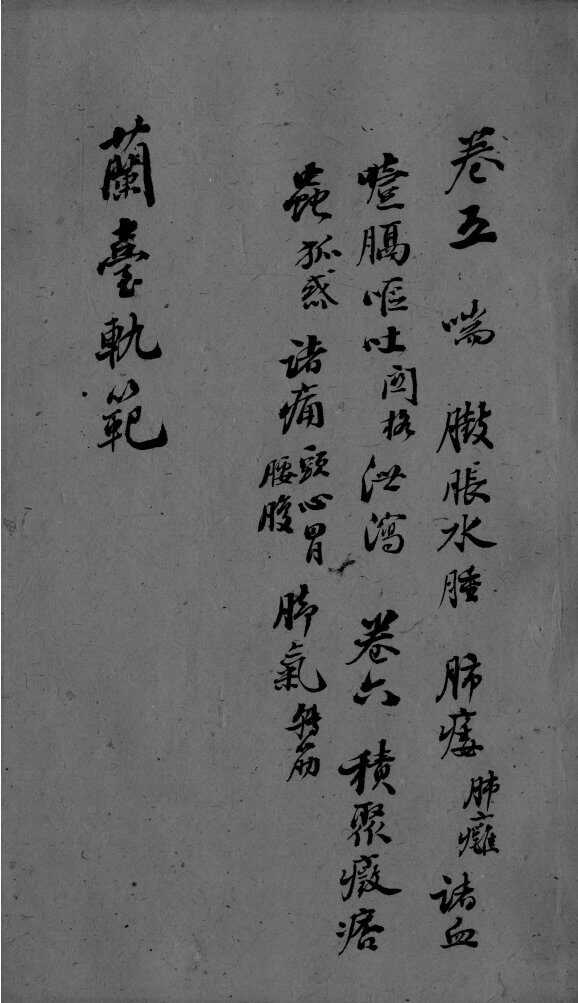 卷五 喘 臌脹水腫 肺痿 肺癰 諸血
噎膈嘔吐 関格 泄瀉 卷六 積聚癥痞
蟲 狐惑 諸痛 頭心胃腰腹 脚氣 轉筋
蘭臺軌範